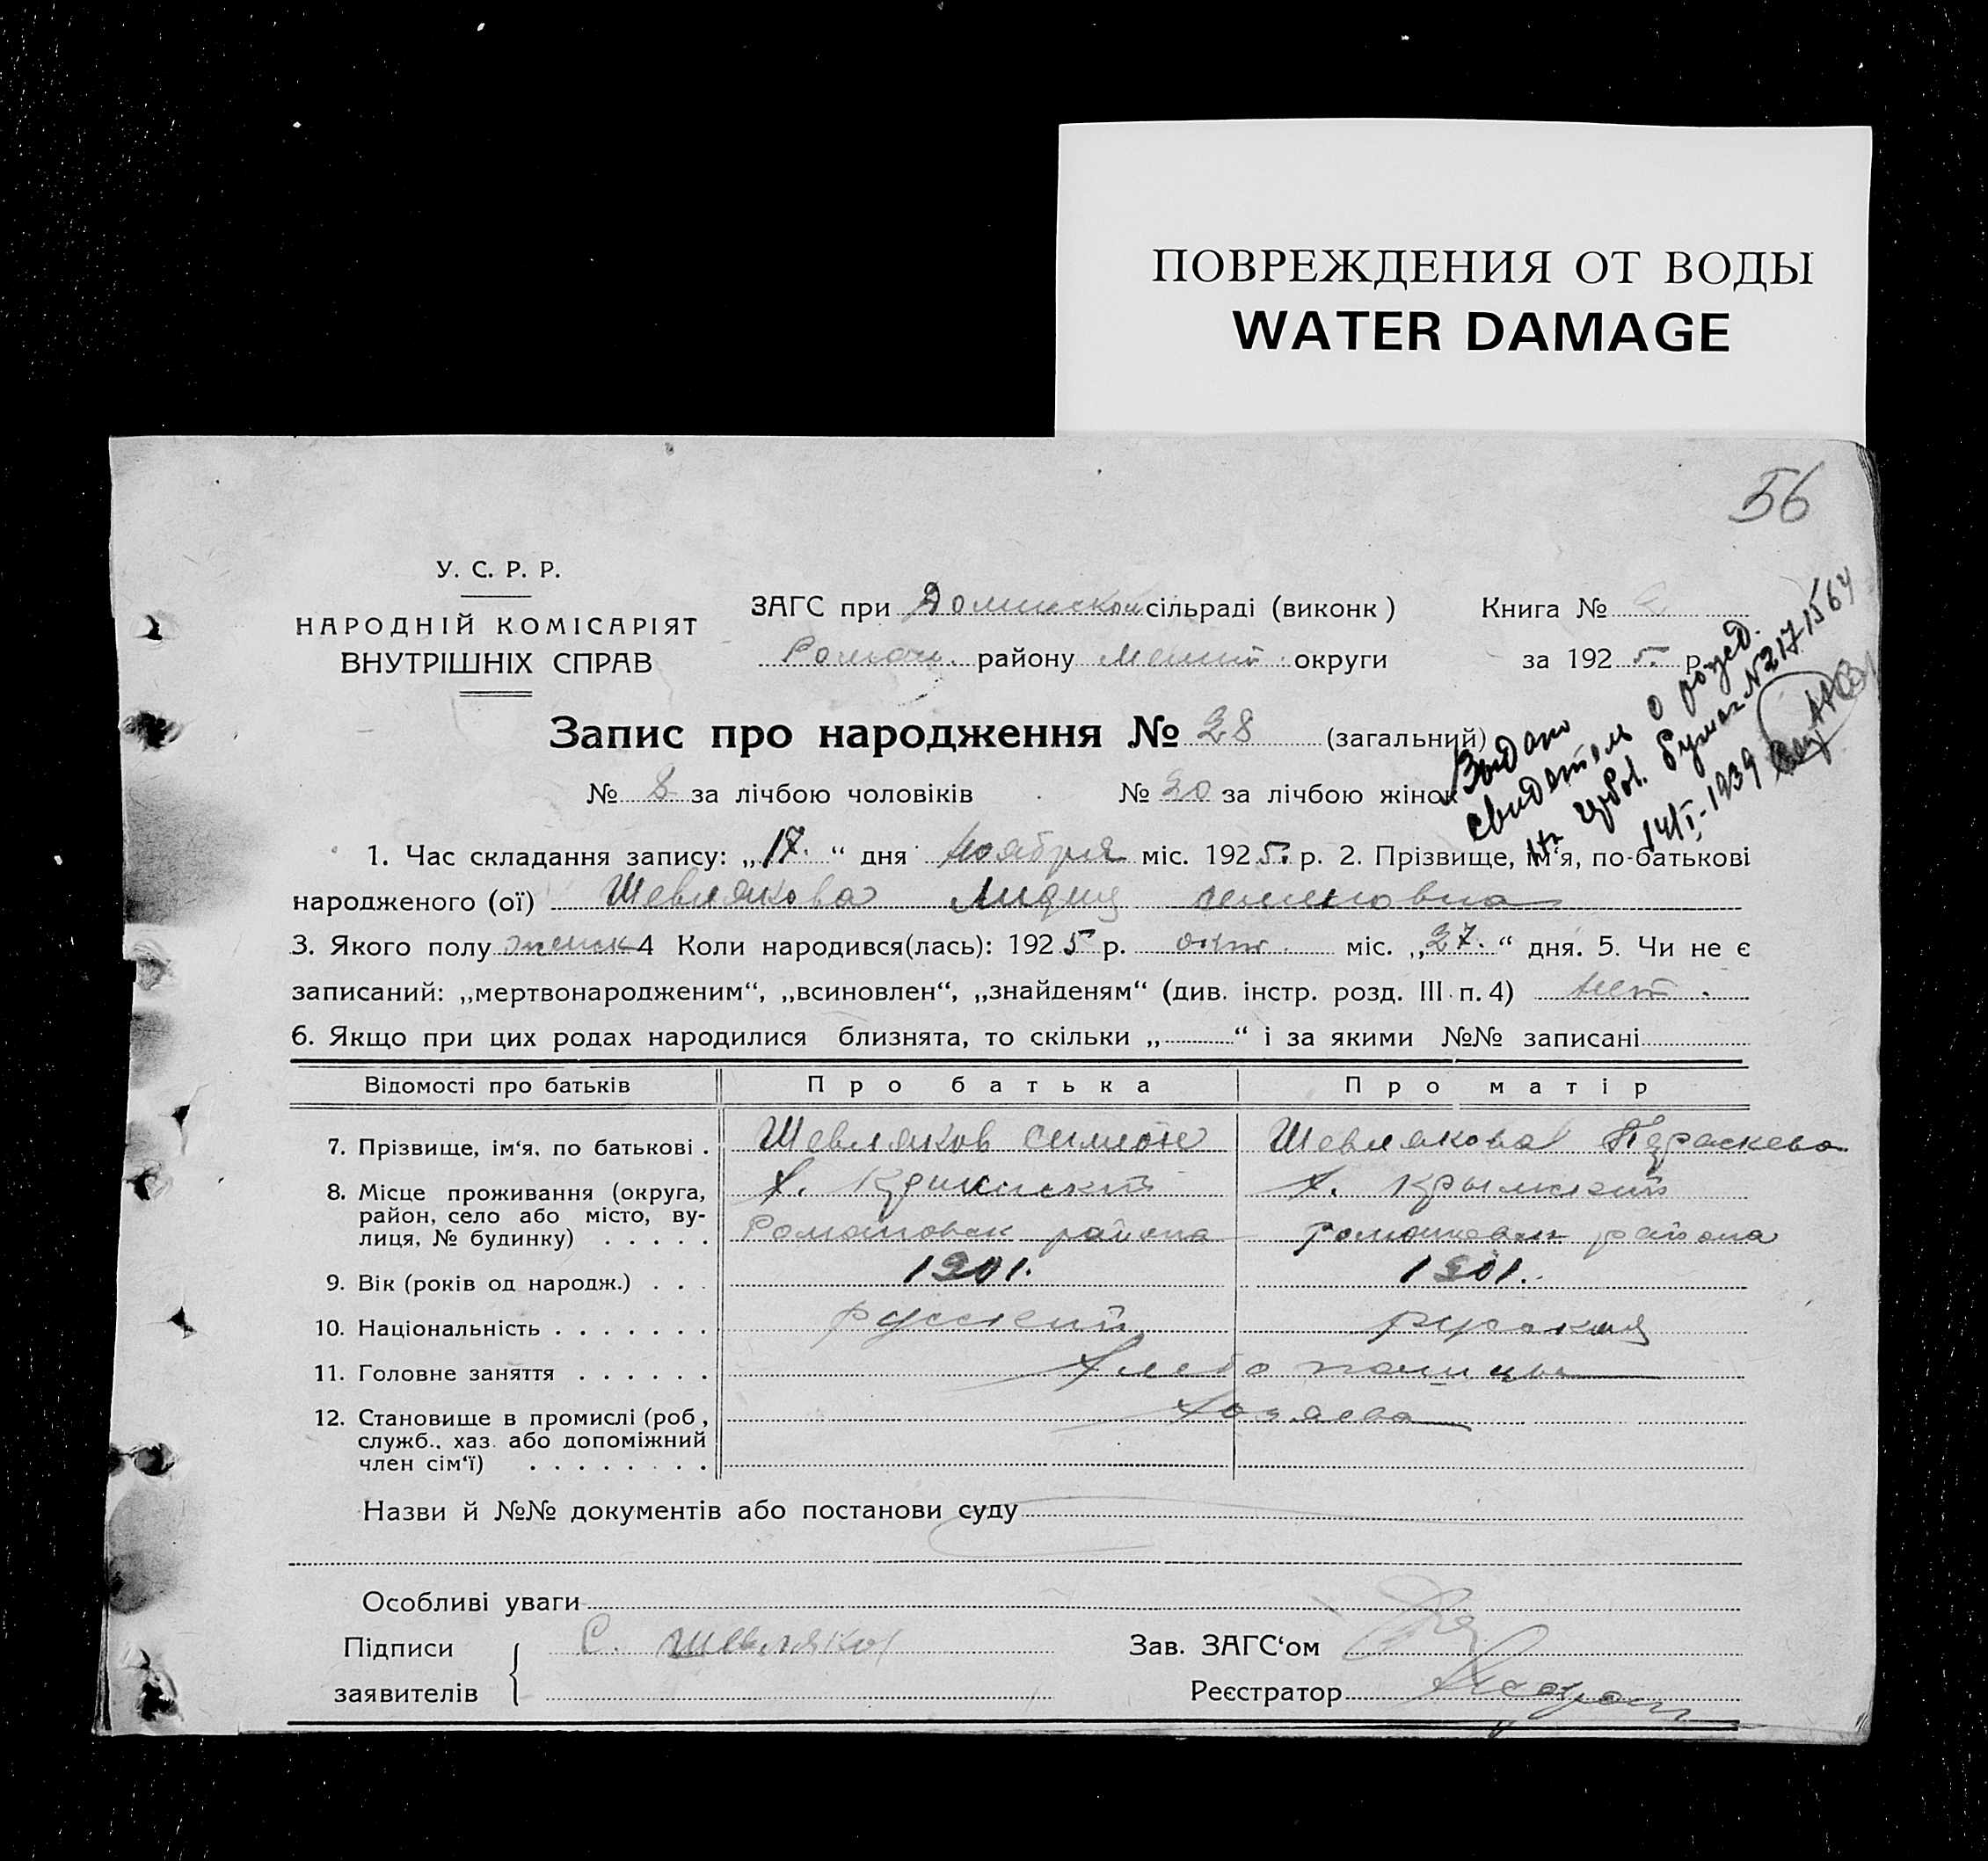 ПОВРЕЖДЕНИЯ ОТ ВОДЫ
WATER DAMAGE
56
У. С. Р. Р.
НАРОДНІЙ КОМІСАРІЯТ
ВНУТРІШНІХ СПРАВ
ЗАГС при сільраді (виконк)
району округи
Книга №
за 1925. р.
Выдано
свидетель о рожд.
гербов. бумаг N 217-1564
14/I-1939
Запис про народження № 28 (загальний)
№ 8 за лічбою чоловіків № 20 за лічбою жінок
1. Час складання запису: „17.“ дня Ноября міс. 1925. р. 2. Прізвище, ім‘я, по-батькові
народженого (ої) Шевлякова Лидия семеновна
3. Якого полу женск 4 Коли народився(лась): 1925 р. окт. міс. „27.“ дня. 5. Чи не є
записаний: „мертвонародженим“, „всиновлен“, „знайденям“ (див. інстр. розд. III п. 4) Нет.
6. Якщо при цих родах народилися близнята, то скільки „ “ і за якими №№ записані
Відомості про батьків Про батька Про матір
7. Прізвище, ім‘я, по батькові . Шевляков симион Шевлякова Параскева
8. Місце проживання (округа, х. Крымский х. Крымский
район, село або місто, ву-
лиця, № будинку) . . . . . Романовск района Романовск района
9. Вік (років од народж.) . . . 1901. 1901.
10. Національність . . . . . . . русский русская
11. Головне заняття . . . . . . Хлебопашцы
12. Становище в промислі (роб, Хозяева
служб., хаз. або допоміжний
член сім‘ї) . . . . . . . .
Назви й №№ документів або постанови суду
Особливі уваги
Підписи С. Шевляков Зав. ЗАГС‘ом
заявителів Реєстратор